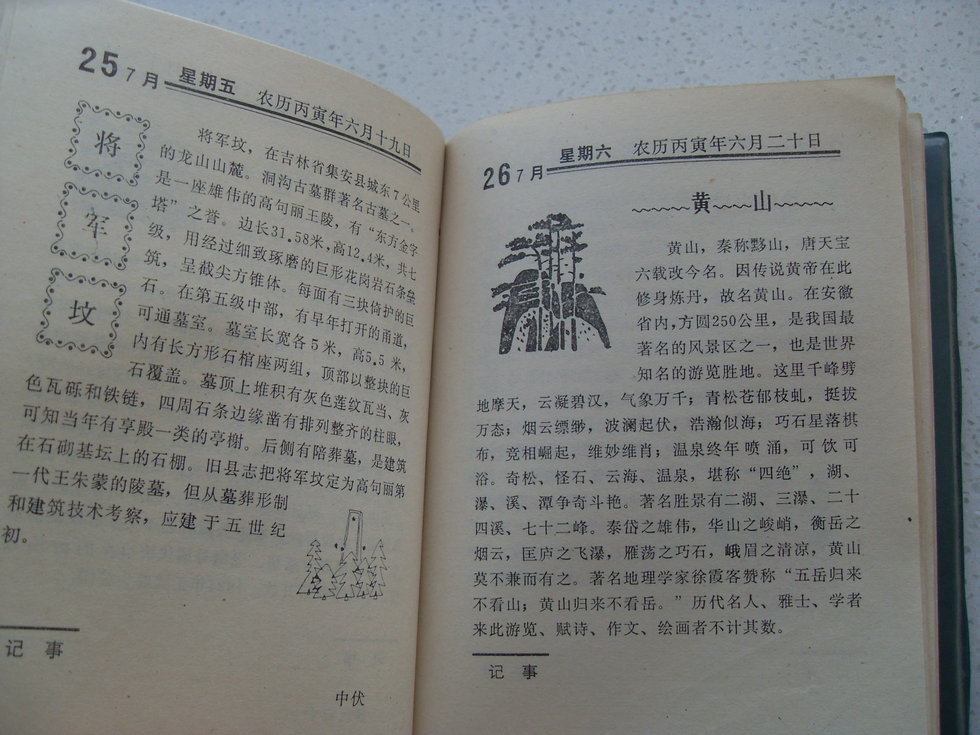 25 7月 星期五 农历丙寅年六月十九日
将军坟
将军坟，在吉林省集安县城东7公里
的龙山山麓。洞沟古墓群著名古墓之一。
是一座雄伟的高句丽王陵，有“东方金字
塔”之誉。边长31.58米，高12.4米，共七
级，用经过细致琢磨的巨形花岗岩石条垒
筑，呈截尖方锥体。每面有三块倚护的巨
石。在第五级中部，有早年打开的甬道，
可通墓室。墓室长宽各5米，高5.5米，
内有长方形石棺座两组，顶部以整块的巨
石覆盖。墓顶上堆积有灰色莲纹瓦当、灰
色瓦砾和铁链，四周石条边缘凿有排列整齐的柱眼，
可知当年有享殿一类的亭榭。后侧有陪葬墓，是建筑
在石砌基坛上的石棚。旧县志把将军坟定为高句丽第
一代王朱蒙的陵墓，但从墓葬形制
和建筑技术考察，应建于五世纪
初。
记事
中伏
26 7月 星期六 农历丙寅年六月二十日
黄山
黄山，秦称黟山，唐天宝
六载改今名。因传说黄帝在此
修身炼丹，故名黄山。在安徽
省内，方圆250公里，是我国最
著名的风景区之一，也是世界
知名的游览胜地。这里千峰劈
地摩天，云凝碧汉，气象万千；青松苍郁枝虬，挺拔
万态；烟云缥缈，波澜起伏，浩瀚似海；巧石星落棋
布，竞相崛起，维妙维肖；温泉终年喷涌，可饮可
浴。奇松、怪石、云海、温泉，堪称“四绝”，湖、
瀑、溪、潭争奇斗艳。著名胜景有二湖、三瀑、二十
四溪、七十二峰。泰岱之雄伟，华山之峻峭，衡岳之
烟云，匡庐之飞瀑，雁荡之巧石，峨眉之清凉，黄山
莫不兼而有之。著名地理学家徐霞客赞称“五岳归来
不看山；黄山归来不看岳。”历代名人、雅士、学者
来此游览、赋诗、作文、绘画者不计其数。
记事